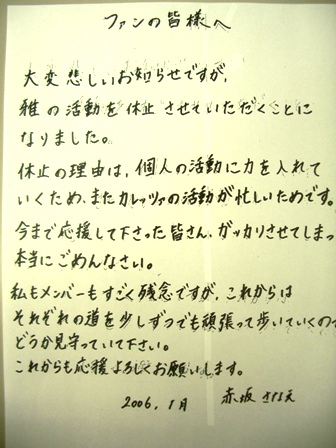 ファンの皆様へ
大変悲しいお知らせですが、
雅の活動を休止させていただくことに
なりました。
休止の理由は、個人の活動に力を入れて
いくため、またカレッツァの活動が忙しいためです。
今まで応援して下さった皆さん、ガッカリさせてしまっ
本当にごめんなさい。
私もメンバーもすごく残念ですが、これからは
それぞれの道を少しずつでも頑張って歩いていくの
どうか見守っていて下さい。
これからも応援よろしくお願いします。
2006.1月 赤坂 さなえ